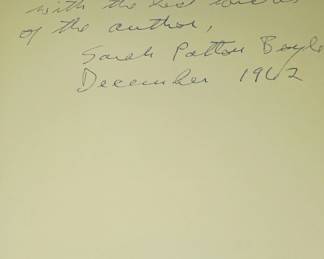 with the best wishes
of the author,
Sarah Patton Boyle
December 1962